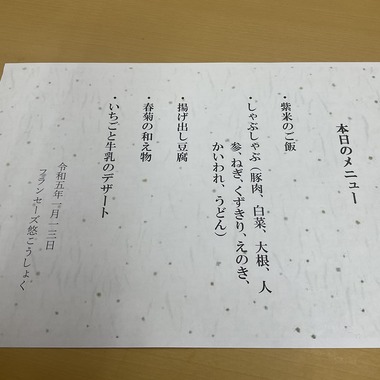 本日のメニュー
・紫米のご飯
・しゃぶしゃぶ（豚肉、白菜、大根、人
参、ねぎ、くずきり、えのき、
かいわれ、うどん）
・揚げ出し豆腐
・春菊の和え物
・いちごと牛乳のデザート
令和五年一月一三日
フランセーズ悠ごうしょく